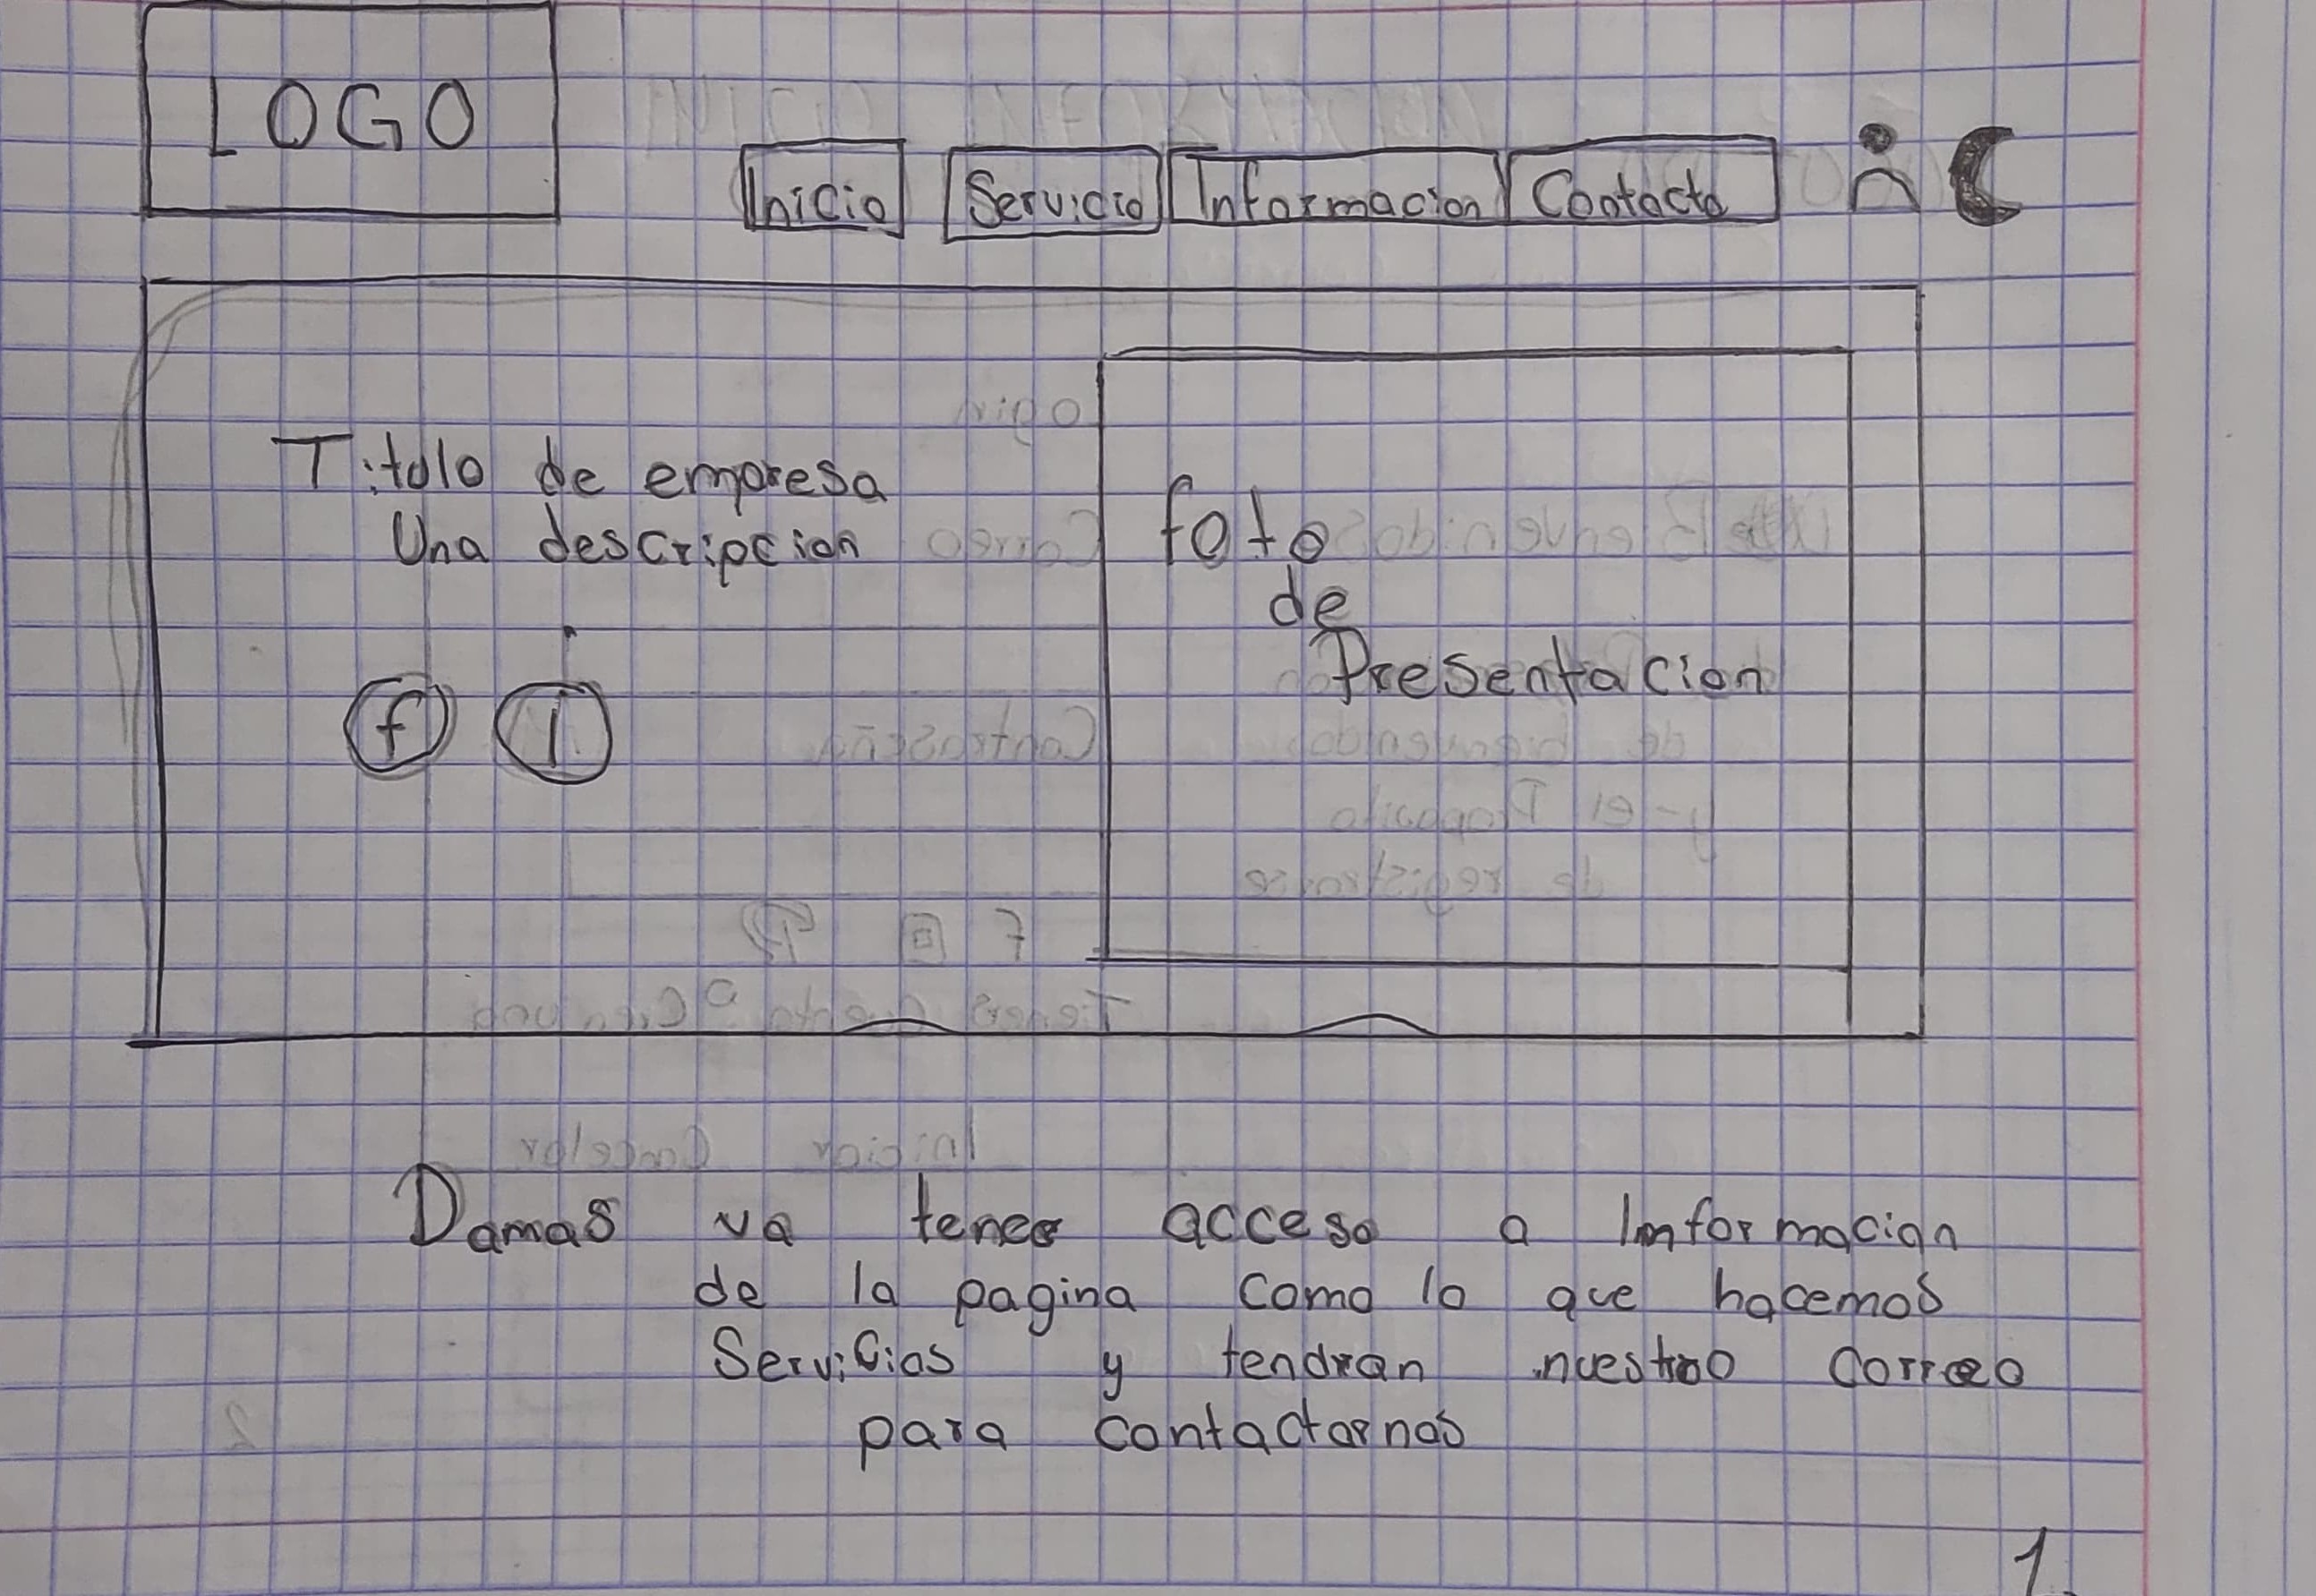 LOGO
Inicio Servicio Informacion Contacto
Titulo de empresa
Una descripcion
foto
de
Presentacion
f i
Damas va tener acceso a Imformacion
de la pagina como lo que hacemos
Servicios y tendran nuestro correo
para contactarnos
1